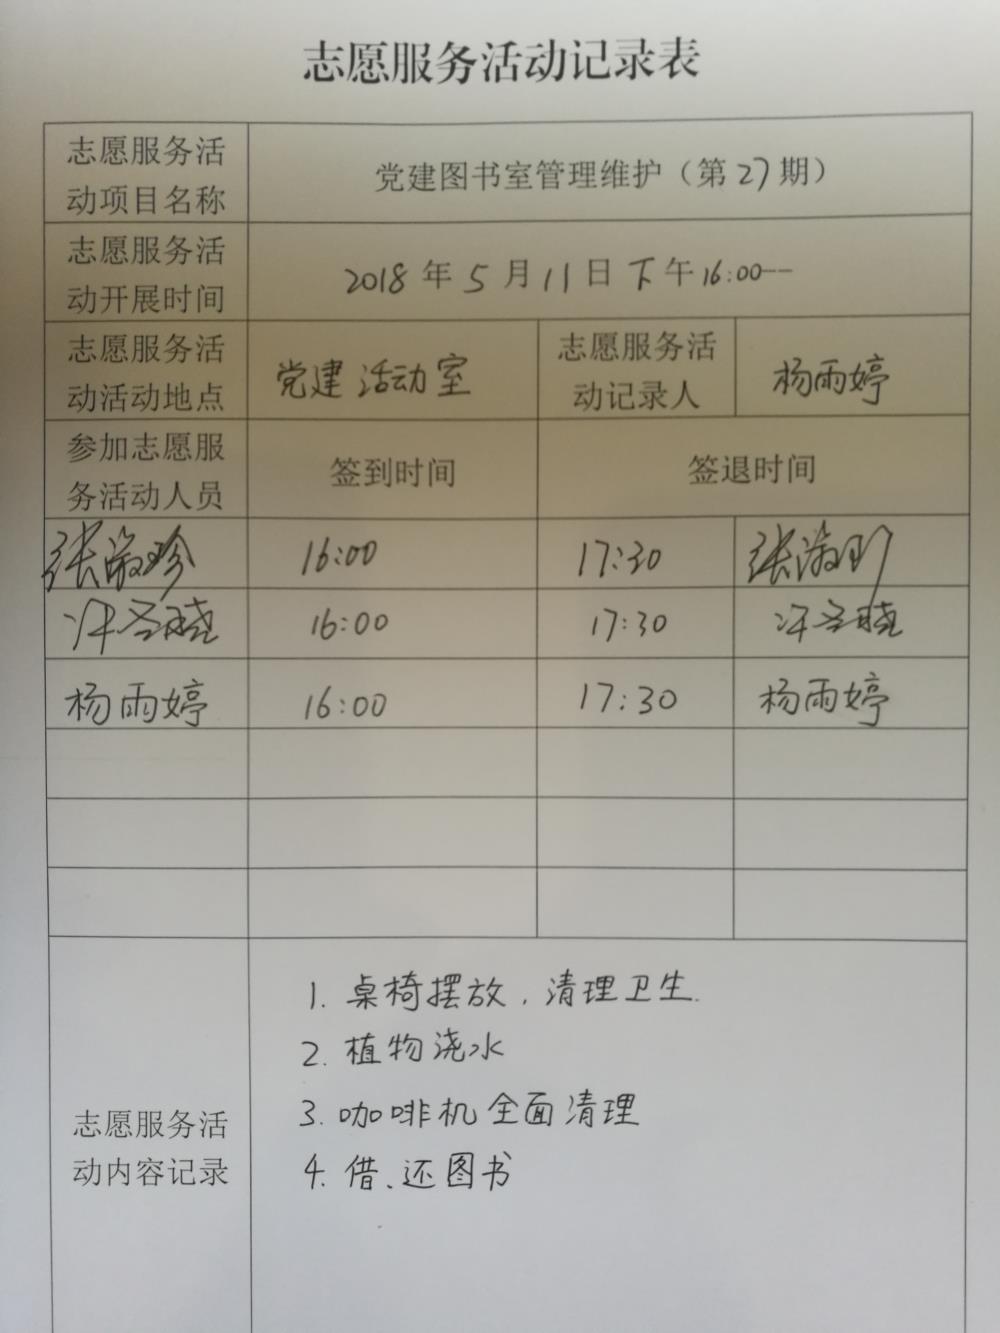 志愿服务活动记录表
志愿服务活
动项目名称
党建图书室管理维护（第27期）
志愿服务活
动开展时间
2018年5月11日下午16:00--
志愿服务活
动活动地点
党建活动室
志愿服务活
动记录人
杨雨婷
参加志愿服
务活动人员
签到时间
签退时间
张淑珍
16:00
17:30
张淑珍
16:00
17:30
杨雨婷
16:00
17:30
杨雨婷
志愿服务活
动内容记录
1. 桌椅摆放，清理卫生.
2. 植物浇水
3. 咖啡机全面清理
4. 借、还图书